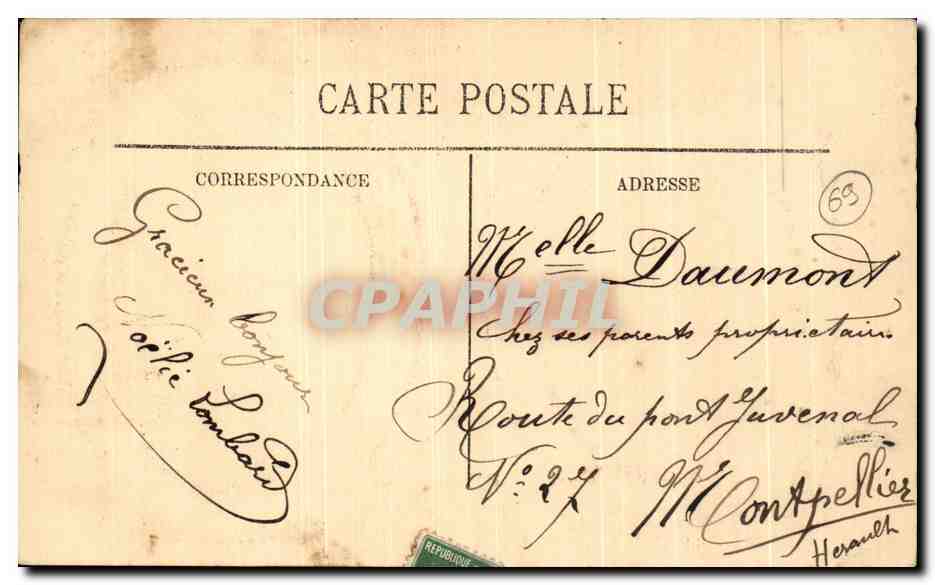 CARTE POSTALE
CORRESPONDANCE
Gracieux bonjour
Noëlie Lombard
ADRESSE
69
Melle Daumont
Chez ses parents propriétaires
Route du pont Juvenal
N° 27 Montpellier
Herault
CPAPHIL
REPUBLIQUE